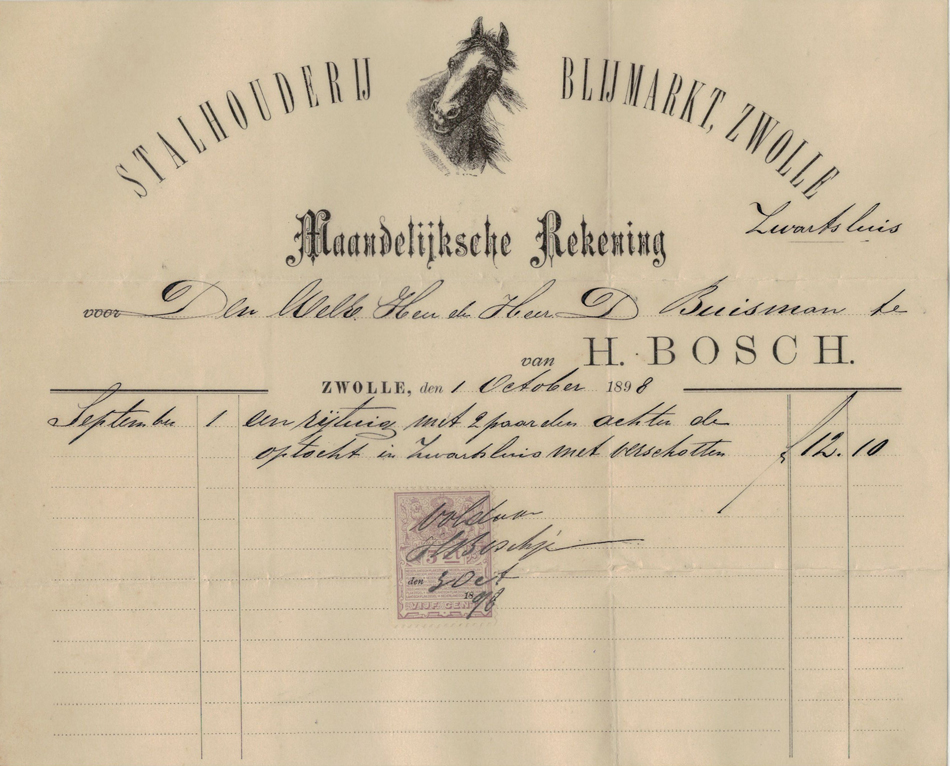 STALHOUDERIJ BLIJMARKT, ZWOLLE
Maandelijksche Rekening
Zwartsluis
voor Den Welk Heer den Heer D Buisman te
van H. BOSCH.
ZWOLLE, den 1 October 1898
September 1 een rijtuig met 2 paarden achter de
optocht in Zwartsluis met verschotten f 12. 10
Voldaan
HBosch
den 3 Oct
1898
VIJF CENT